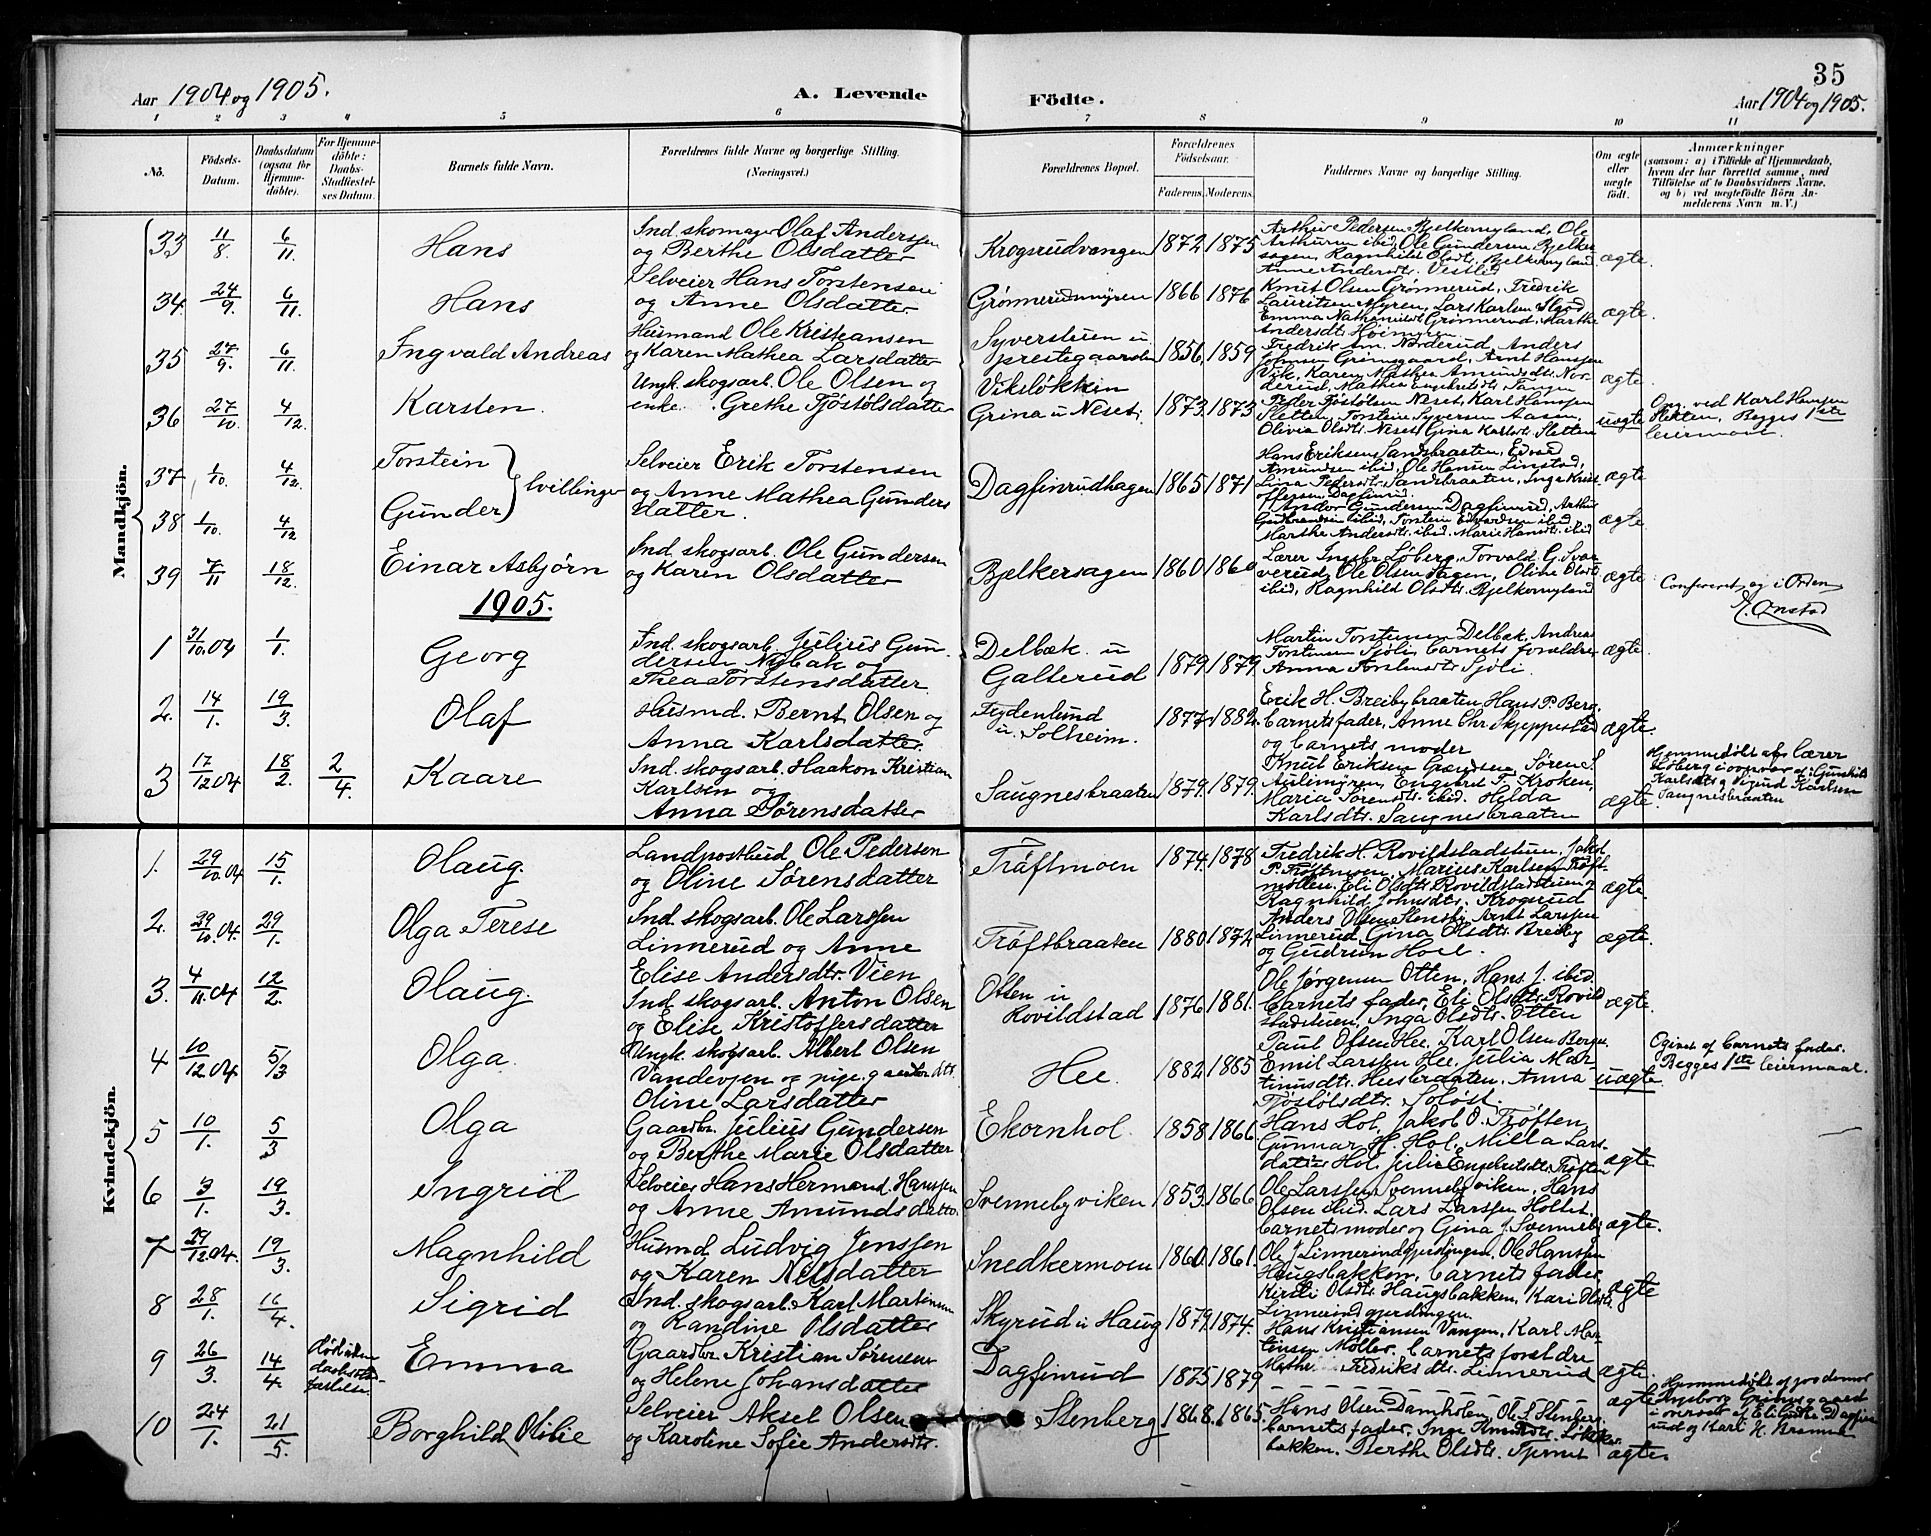 35
Aar 1904 og 1905.
A. Levende Födte.
Aar 1904 og 1905.
1 2 3 4 5 6 7 8 9 10 11
No.
Födsels-Datum.
Daabsdatum (ogsaa for Hjemme-döbte).
For Hjemme-döbte: Daabs-Stadfæstel-ses Datum.
Barnets fulde Navn.
Forældrenes fulde Navne og borgerlige Stilling. (Næringsvei.)
Forældrenes Bopæl.
Forældrenes Födselsaar.
Faderens. Moderens.
Faddernes Navne og borgerlige Stilling.
Om ægte eller uægte födt.
Anmærkninger
(saasom: a) i Tilfælde af Hjemmedaab, hvem der har forrettet samme, med Tilföielse af to Daabsvidners Navne, og b) ved uægtefödte Börn Anmelderens Navn m. V.)
Mandkjön.
33 11/8. 6/11 Hans
Ind. skomager Olaf Anderssen
og Berthe Olsdatter
Krogsrudvangen 1872 1875
Arthur Pedersen Bjelkemyrland, Ole
Arthursen ibid, Ole Gundersen Bjelker
sagen, Ragnhild Olsdt. Bjelkemyrland
Anne Andersdt. Vestlie
ægte.
34. 24/9. 6/11. Hans
Selveier Hans Torstensen
og Anne Olsdatter
Grønnerudmyren 1866 1876
Knut Olsen Grønnerud, Fredrik
Lauritzen Myren, Lars Karlsen
Emma Nathanielsdt. Grønnerud, Marthe
Andersdt. Høimyren
ægte.
35 24/9. 6/11. Ingvald Andreas
Husmand Ole Kristiansen
og Karen Mathea Larsdatter
Syverstuen u
prestegaarden 1856 1859
Fredrik Am. Norderud, Anders
Johnsen Grimsgaard, Arnt Hanssen
Vik, Karen Mathea Amundsdt. Nor-
derud, Mathea Engebretsdt. Tangen
ægte.
36 27/10. 4/12. Karsten.
Ungk. skogsarb. Ole Olsen og
enke Grethe Tjøstølsdatter
Vikeløkken
Grina u Neset. 1873. 1873
Peder Tjøstølsen Neset, Karl Hanssen
Sletten, Torstein Syversen Aasen,
Olivia Olsdt. Neset, Gina Karlsdt. Sletten
uægte
Opg. ved Karl Hanssen
Sletten, Begges 1ste
leiermaal.
37 1/10. 4/12. Torstein
38 1/10. 4/12 Gunder } tvillinger
Selveier Erik Torstensen
og Anne Mathea Gunders
datter.
Dagfinrudhagen 1865 1871
Hans Eriksen Sandsbraaten, Edvard
Amundsen ibid, Ole Hansen Linstad,
Lina Pedersdt. Sandsbraaten, Inga Krist
offersen Dagfinrud.
ægte
Andor Gundersen Dagfinrud, Arthur
Gudbrandsen ibid, Torstein Edvardsen ibid
Marthe Andersdt. ibid. Marie Hansdt. ibid
ægte
39 7/11 18/12. Einar Asbjørn
Ind. skogsarb. Ole Gundersen
og Karen Olsdatter
Bjelkersagen 1860 1860
Lærer Ingebr. Løberg, Torvald G. Svar
verud, Ole Olsen Sagen, Oline Olsdt
ibid, Ragnhild Olsdt. Bjelkemyrland
ægte
Confereret og i Orden
Ønstad
1905.
1 31/10.04 1/1. Georg
Ind. skogsarb. Julius Gun-
dersen Nybak og
Thea Torstensdatter
Delbæk u
Galterud 1879 1879
Martin Torstensen Delbæk, Andreas
Torstensen Sjøli, barnets forældre,
Anna Torstensdt. Sjøli.
ægte.
2. 14/1. 19/3. Olaf
Husmd. Bernt Olsen og
Anna Karlsdatter.
Frydenlund
u. Solheim. 1877 1882
Erik H. Breibybraaten Hans P. Berg,
barnets fader, Anne Chr. Skjeppestad
og barnets moder
ægte.
3 17/12 04 18/2. 2/4. Kaare
Ind. skogsarb. Haakon Kristian
Karlsen og
Anna Sørensdatter
Saugnesbraaten 1879. 1879.
Knut Eriksen Grændsen, Søren S.
Aulimyren, Engebret T. Kroken,
Maria Sørensdt. ibid. Hylda
Karlsdt. Saugnesbraaten
ægte
Hjemmedøbt af lærer
Løberg i overvær af Gunhild
Karlsdt. og Sigurd Karlsen
Saugnesbraaten
Kvindekjön.
1. 29/10.04 15/1. Olaug.
Landpostbud Ole Pedersen
og Oline Sørensdatter
Trøftmoen 1874. 1878.
Fredrik H. Rovildstadstuen, Jakob
P. Trøftmoen, Marius Karlsen Trøft-
møllen, Eli Olsdt. Rovildstadstuen og
Ragnhild Johnsdt. Krogsrud
ægte.
2. 29/10.04. 29/1. Olga Terese
Ind. skogsarb. Ole Larssen
Linnerud og Anne
Elise Andersdt. Vien
Trøftbraaten 1880 1872
Anders Olsen Stensby, Arnt Larssen
Linnerud, Gina Olsdt. Breiby
og Gudrun Hoel.
ægte.
3. 4/11.04 12/2. Olaug
Ind. skogsarb. Anton Olsen
og Elise Kristoffersdatter
Otten u
Rovildstad 1876 1881.
Ole Jørgensen Otten, Hans J. ibid.
barnets fader, Eli Olsdt. Rovild
stadstuen, Inga Olsdt. Otten
ægte.
4 10/12.04. 5/3 Olga.
Ungk. skogsarb. Albert Olsen
Vandevjen og pige gaardbr. dtr.
Oline Larsdatter
Hee. 1882 1885
Paul Olsen Hee, Karl Olsen Bergn.
Emil Larssen Hee, Julia Mar-
tinusdt. Heesbraaten, Anna
Tjøstølsdt. Soløst.
uægte.
Opgivet af barnets fader.
Begges 1ste leiermaal.
5 10/1. 5/3 Olga
Gaardbr. Julius Gundersen
og Berthe Marie Olsdatter
Ekornhol. 1858 1866
Hans Hol, Jakob O. Trøften,
Gunnar H. Hol, Milla Lars-
datter Hol, Julie Engebretsdt. Trøften
ægte.
6 3/1. 19/3. Ingrid
Selveier Hans Hermand Hanssen
og Anne Amundsdatter.
Svennebyviken 1853. 1866.
Ole Larssen Svennebyviken, Hans
Olsen ibid. Lars Larssen Holtet.
barnets moder og Gina J. Svenneby
ægte.
7 29/12.04. 19/3. Magnhild
Husmd. Ludvig Jenssen
og Karen Nilsdatter
Snedkermoen 1860. 1861.
Ole J. Linnerudgjerdingen, Ole Hanssen
Haugsbakken, barnets fader
Kirsti Olsdt. Haugsbakken, Kari Olsdt.
Linnerudgjerdingen
ægte
8 28/1. 16/4. Sigrid
Ind. skogsarb. Karl Martinsen
og Randine Olsdatter
Skyrud u Haug 1879 1874.
Hans Kristiansen Vangen, Karl Mar-
tinsen Møller, barnets forældre
Mathe Fredriksdt. Linnerud
ægte.
9 26/3. 14/4. Død uden
daabsstad-
fæstelse Emma
Gaardbr. Kristian Sørensen
og Helene Johansdatter
Dagfinrud 1875 1879
ægte
Hjemmedøbt af jordemor
Ingeborg Grimsgaard
i overvær af Dagfin
rud og Karl H. Bramm
10 24/1. 21/5. Borghild Otilie
Selveier Aksel Olsen
og Karoline Sofie Andersdt.
Stenberg 1868. 1865.
Hans Olsen Damholen, Ole S. Stenberg
barnets fader, Inge Knudsdt. Løkker-
bakken. Berthe Olsdt. Tjernet
ægte.